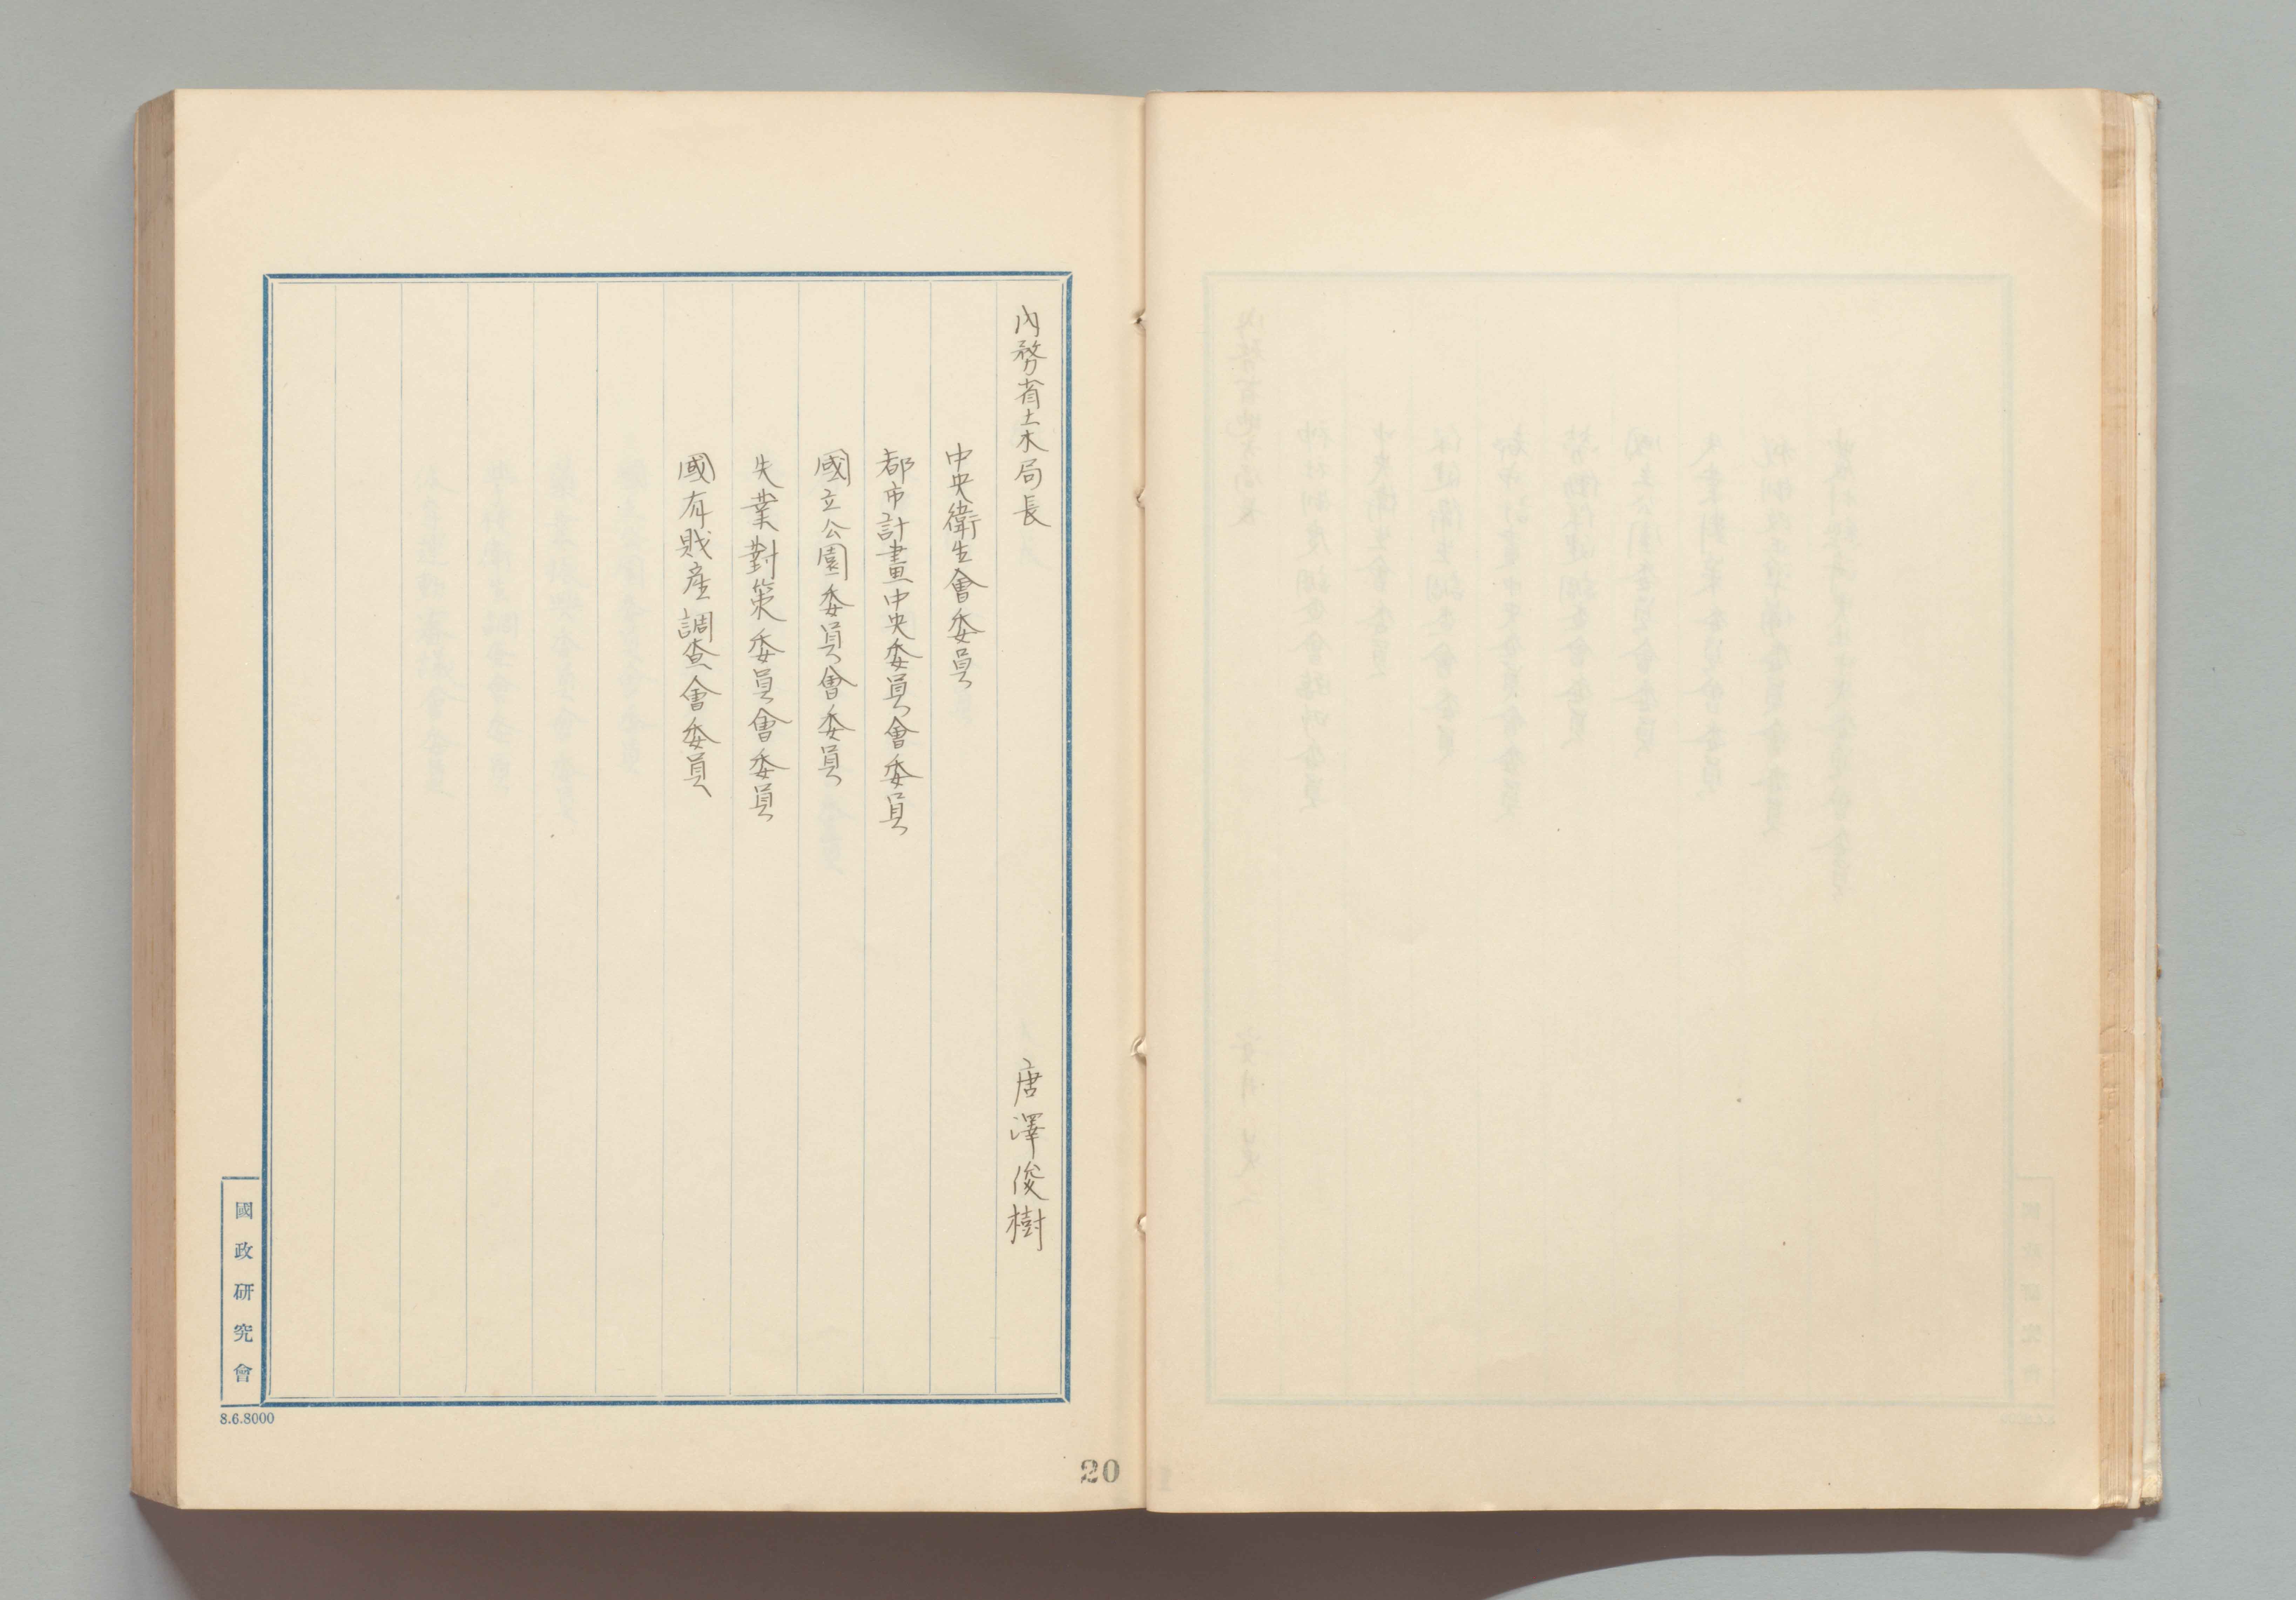 內務省土木局長 唐澤俊樹
中央衛生會委員
都市計畫中央委員會委員
國立公園委員會委員
失業對策委員會委員
國有財產調查會委員
國政研究會
8.6.8000
20